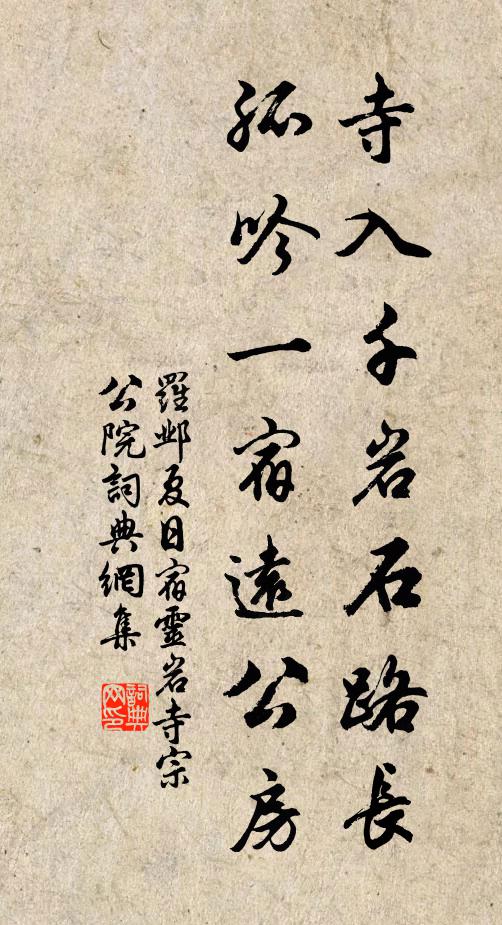 寺入千岩石路長
孤吟一宿遠公房
羅鄴夏日宿靈岩寺宗
公院詞典網集
詞典网印